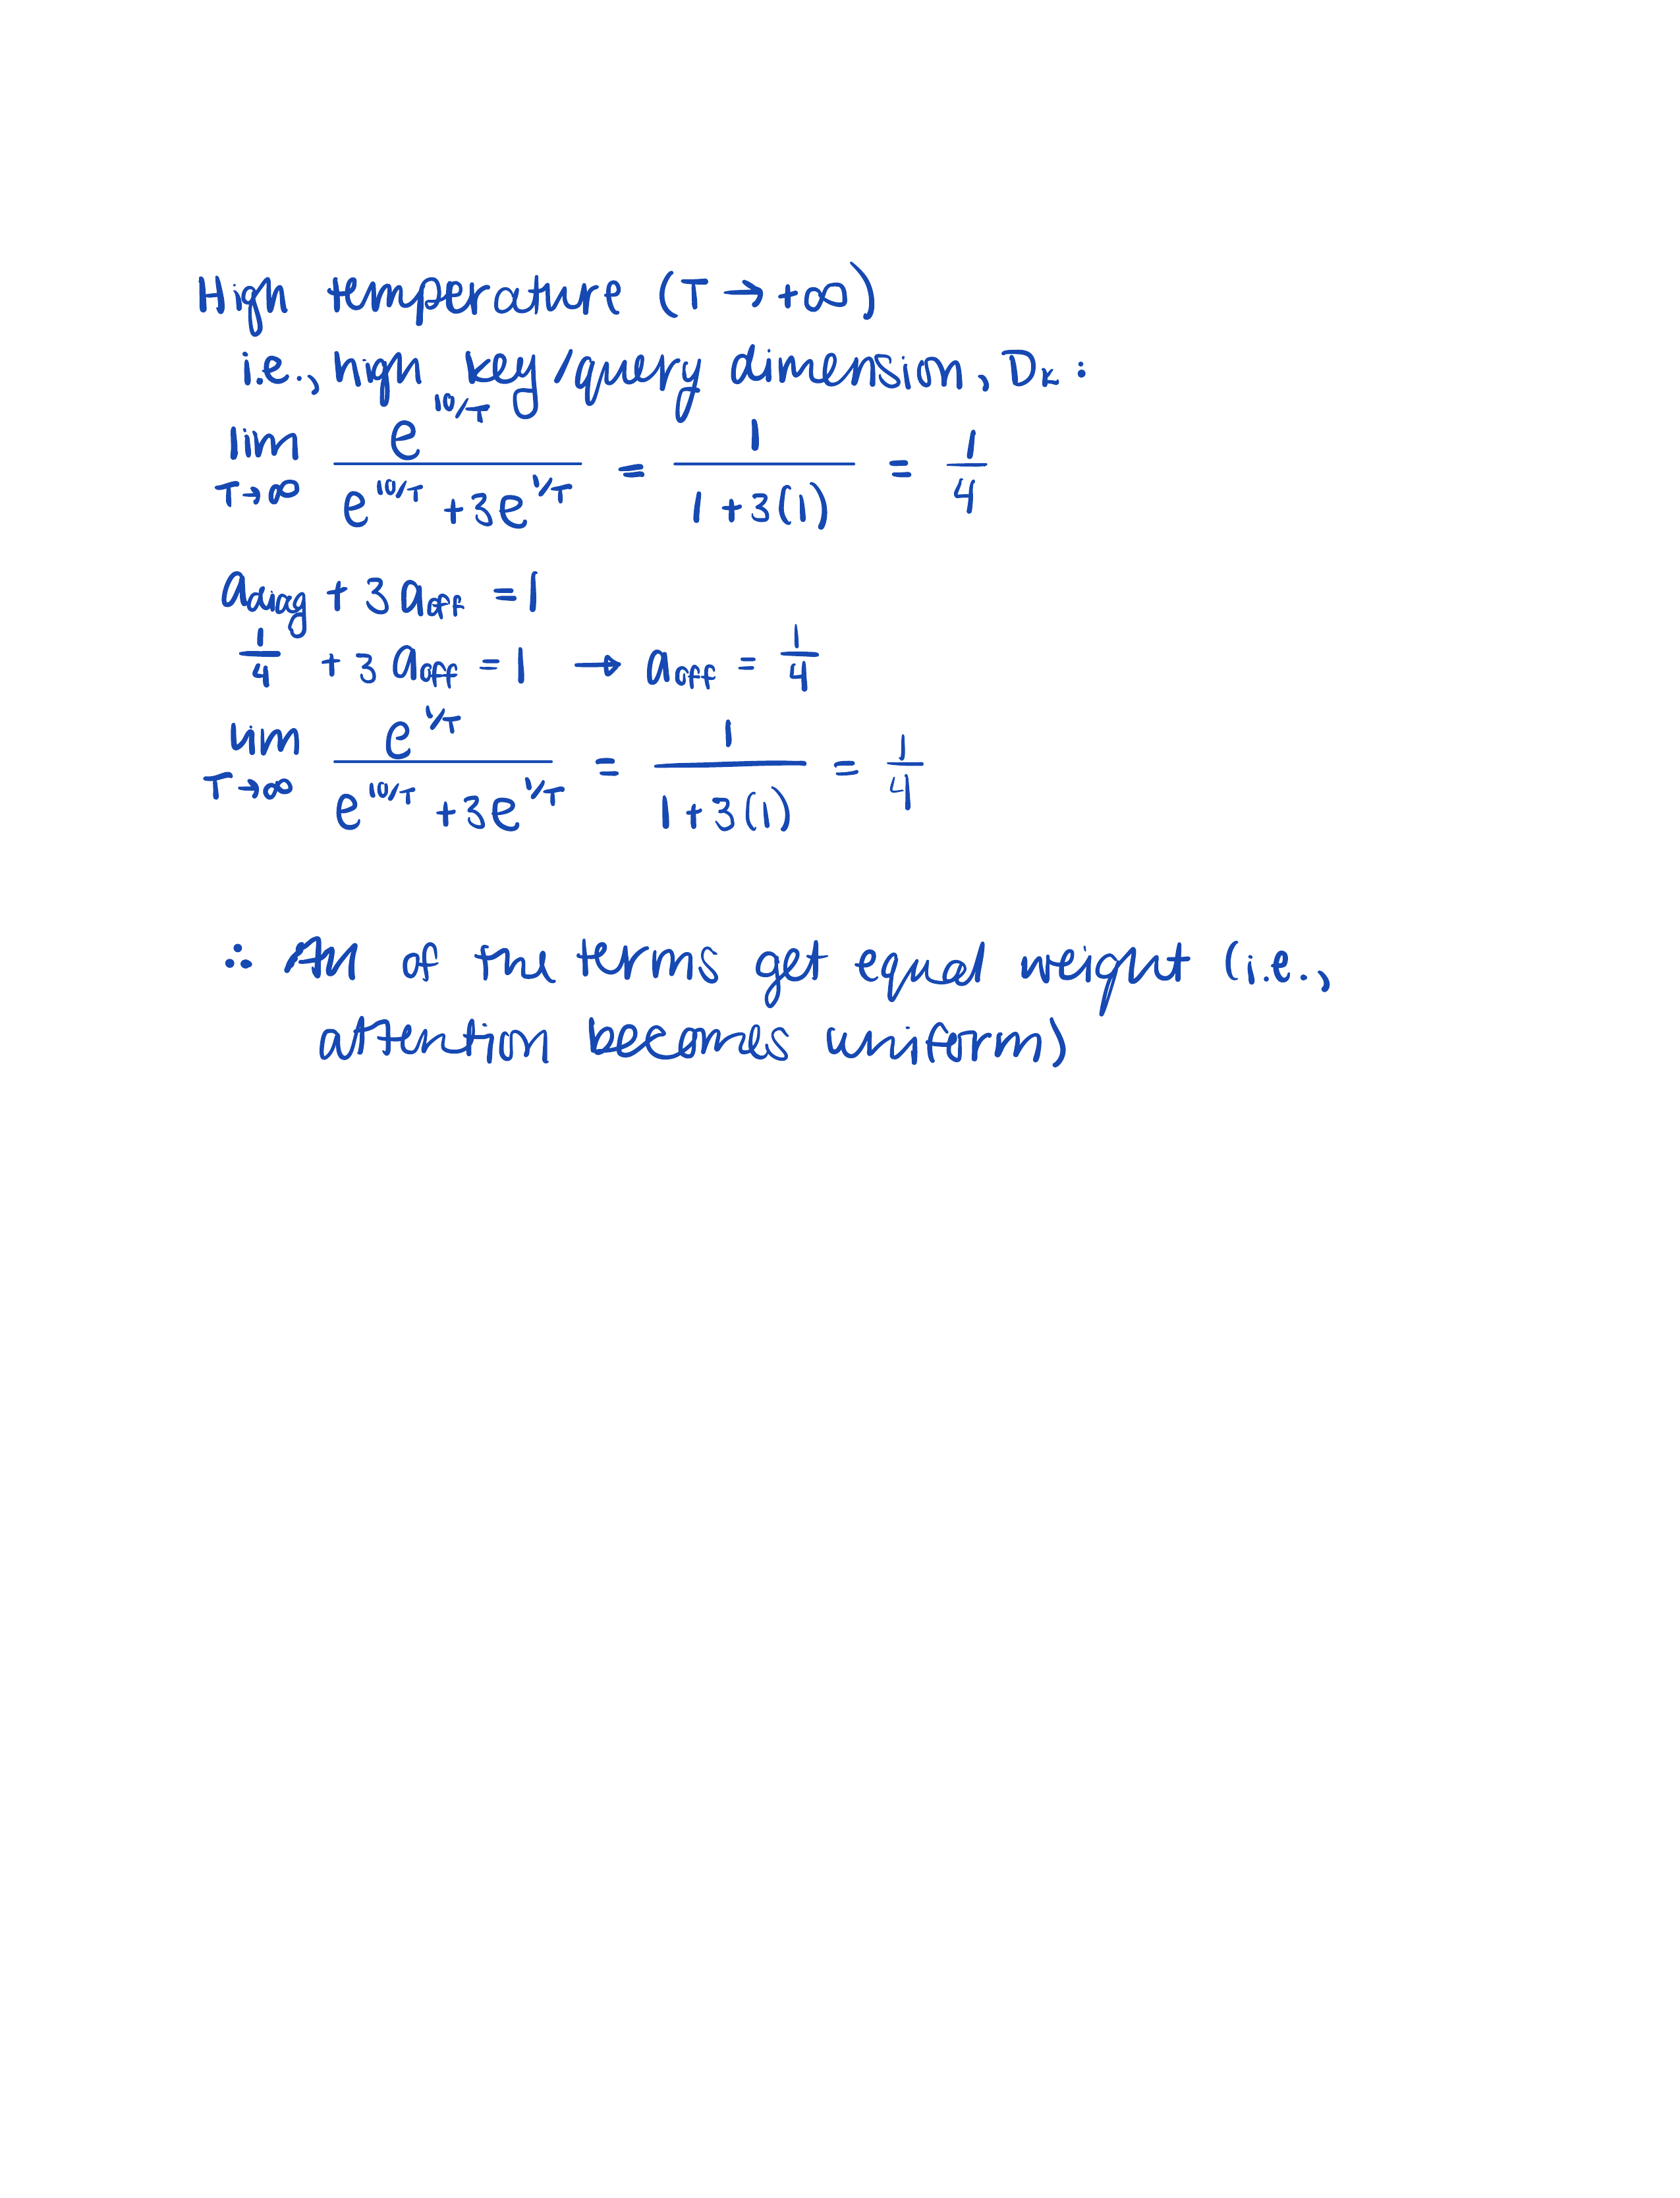 High temperature (T → +∞)
i.e., high key/query dimension, Dₖ:
lim T→∞ e^(10/T) / (e^(10/T) + 3e^(1/T)) = 1 / (1 + 3(1)) = 1/4
a_diag + 3 a_off = 1
1/4 + 3 a_off = 1 → a_off = 1/4
lim T→∞ e^(1/T) / (e^(10/T) + 3e^(1/T)) = 1 / (1 + 3(1)) = 1/4
∴ All of the terms get equal weight (i.e.,
attention becomes uniform)